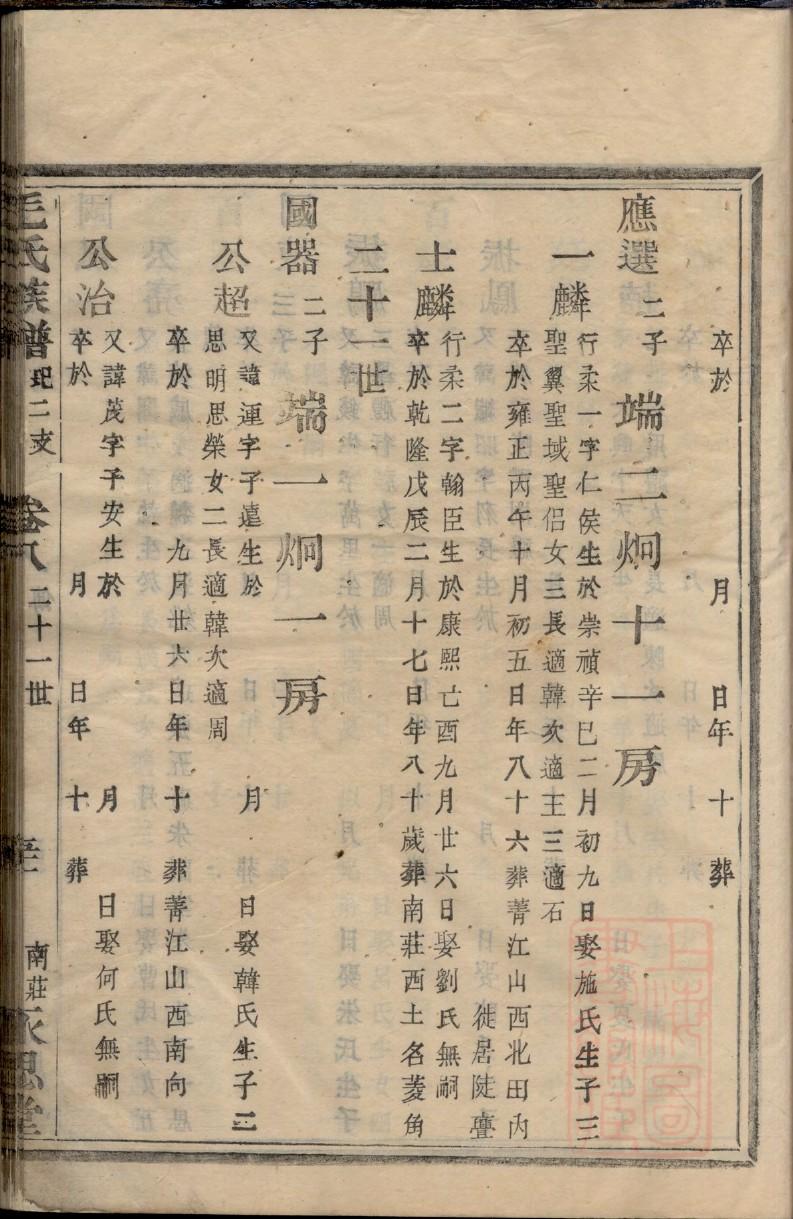 卒於 月 日年 十 葬
應選 二子 端二炯十一房
一麟 行柔一字仁侯生於崇禎辛巳二月初九日娶施氏生子三
聖翼聖域聖侶女三長適韓次適王三適石
卒於雍正丙午十月初五日年八十六葬菁江山西北田內
徙居陡亹
士麟 行柔二字翰臣生於康熙亡酉九月廿六日娶劉氏無嗣
卒於乾隆戊辰二月十七日年八十歲葬南莊西土名菱角
二十一世
國器 二子 端一炯一房
公超 又諱運字子遠生於 月 日娶韓氏生子二
思明思榮女二長適韓次適周
卒於 九月廿六日年 十 葬菁江山西南向
公治 又諱茂字子安生於 月 日娶何氏無嗣
卒於 月 日年 十 葬
毛氏族譜 二支 卷八 二十一世 南莊永思堂